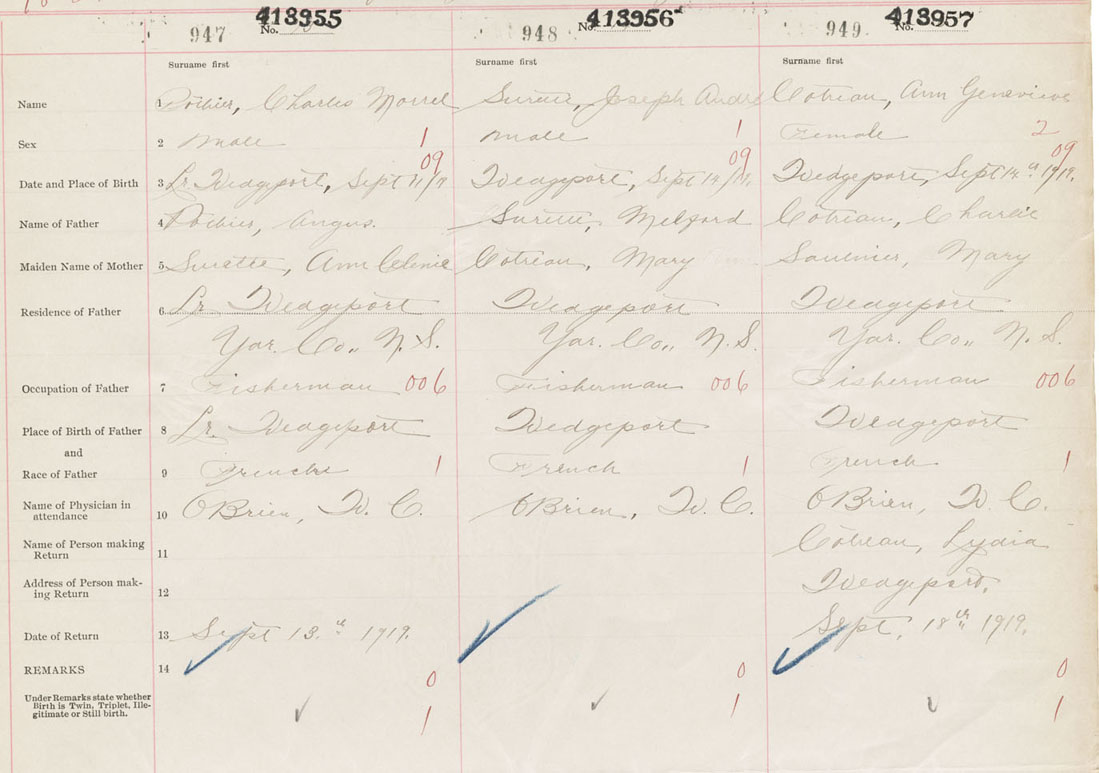 413955 413956 413957
947 No. 948 No. 949 No.
Surname first Surname first Surname first
Name 1 Pothier, Charles Morrel Surette, Joseph André Cotreau, Ann Genevieve
Sex 2 Male 1 Male 1 Female 2
09 09 09
Date and Place of Birth 3 Lr. Wedgeport, Sept 11/19 Wedgeport, Sept 14/19. Wedgeport, Sept 14th 1919.
Name of Father 4 Pothier, Angus. Surette, Melford Cotreau, Charlie
Maiden Name of Mother 5 Surette, Ann Celinie Cotreau, Mary Saulnier, Mary
Residence of Father 6 Lr. Wedgeport Wedgeport Wedgeport
Yar. Co., N.S. Yar. Co., N.S. Yar. Co., N.S.
Occupation of Father 7 Fisherman 006 Fisherman 006 Fisherman 006
Place of Birth of Father 8 Lr. Wedgeport Wedgeport Wedgeport
and
Race of Father 9 French 1 French 1 French 1
Name of Physician in
attendance 10 O'Brien, W. C. O'Brien, W. C. O'Brien, W. C.
Name of Person making
Return 11 Cotreau, Lydia
Address of Person mak-
ing Return 12 Wedgeport.
Date of Return 13 Sept 13th 1919. Sept. 18th 1919.
REMARKS 14
0 0 0
Under Remarks state whether
Birth is Twin, Triplet, Ille-
gitimate or Still birth.
1 1 1